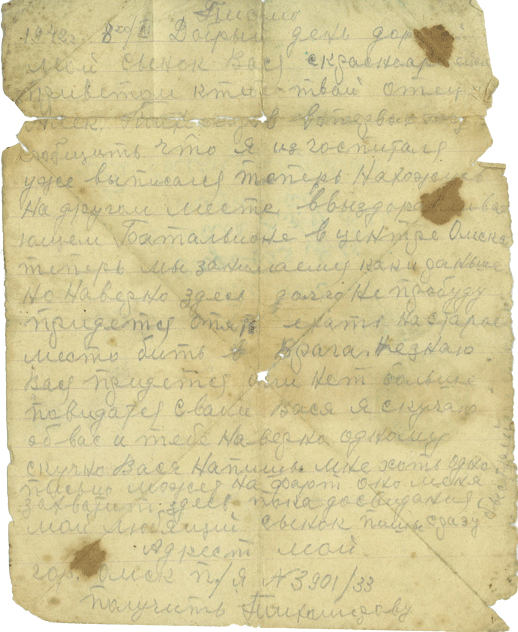 Письмо
1942г. 8го/II Добрый день дорогой
мой сынок Вася с красноармейским
приветом к тебе твой отец
в первых
сообщить что я из госпиталя
уже выписался теперь нахожусь
на другом месте в выздоравлива
ющем Баталвионе в центре Омска
теперь мы занимаемся как и раньше
но наверно здесь долго не пробуду
придется опять ехать на старое
место бить врага незнаю
Вася придется или нет больше
повидатся с вами Вася я скучаю
об вас и тебе наверно одному
скучно Вася напиши мне хоть одно
письмо может на фарт оно меня
захватит здесь пока досвидания
мой любящий сынок пиши сразу
Адрест мой
гор. Омск п/я N 3901/33
Получить